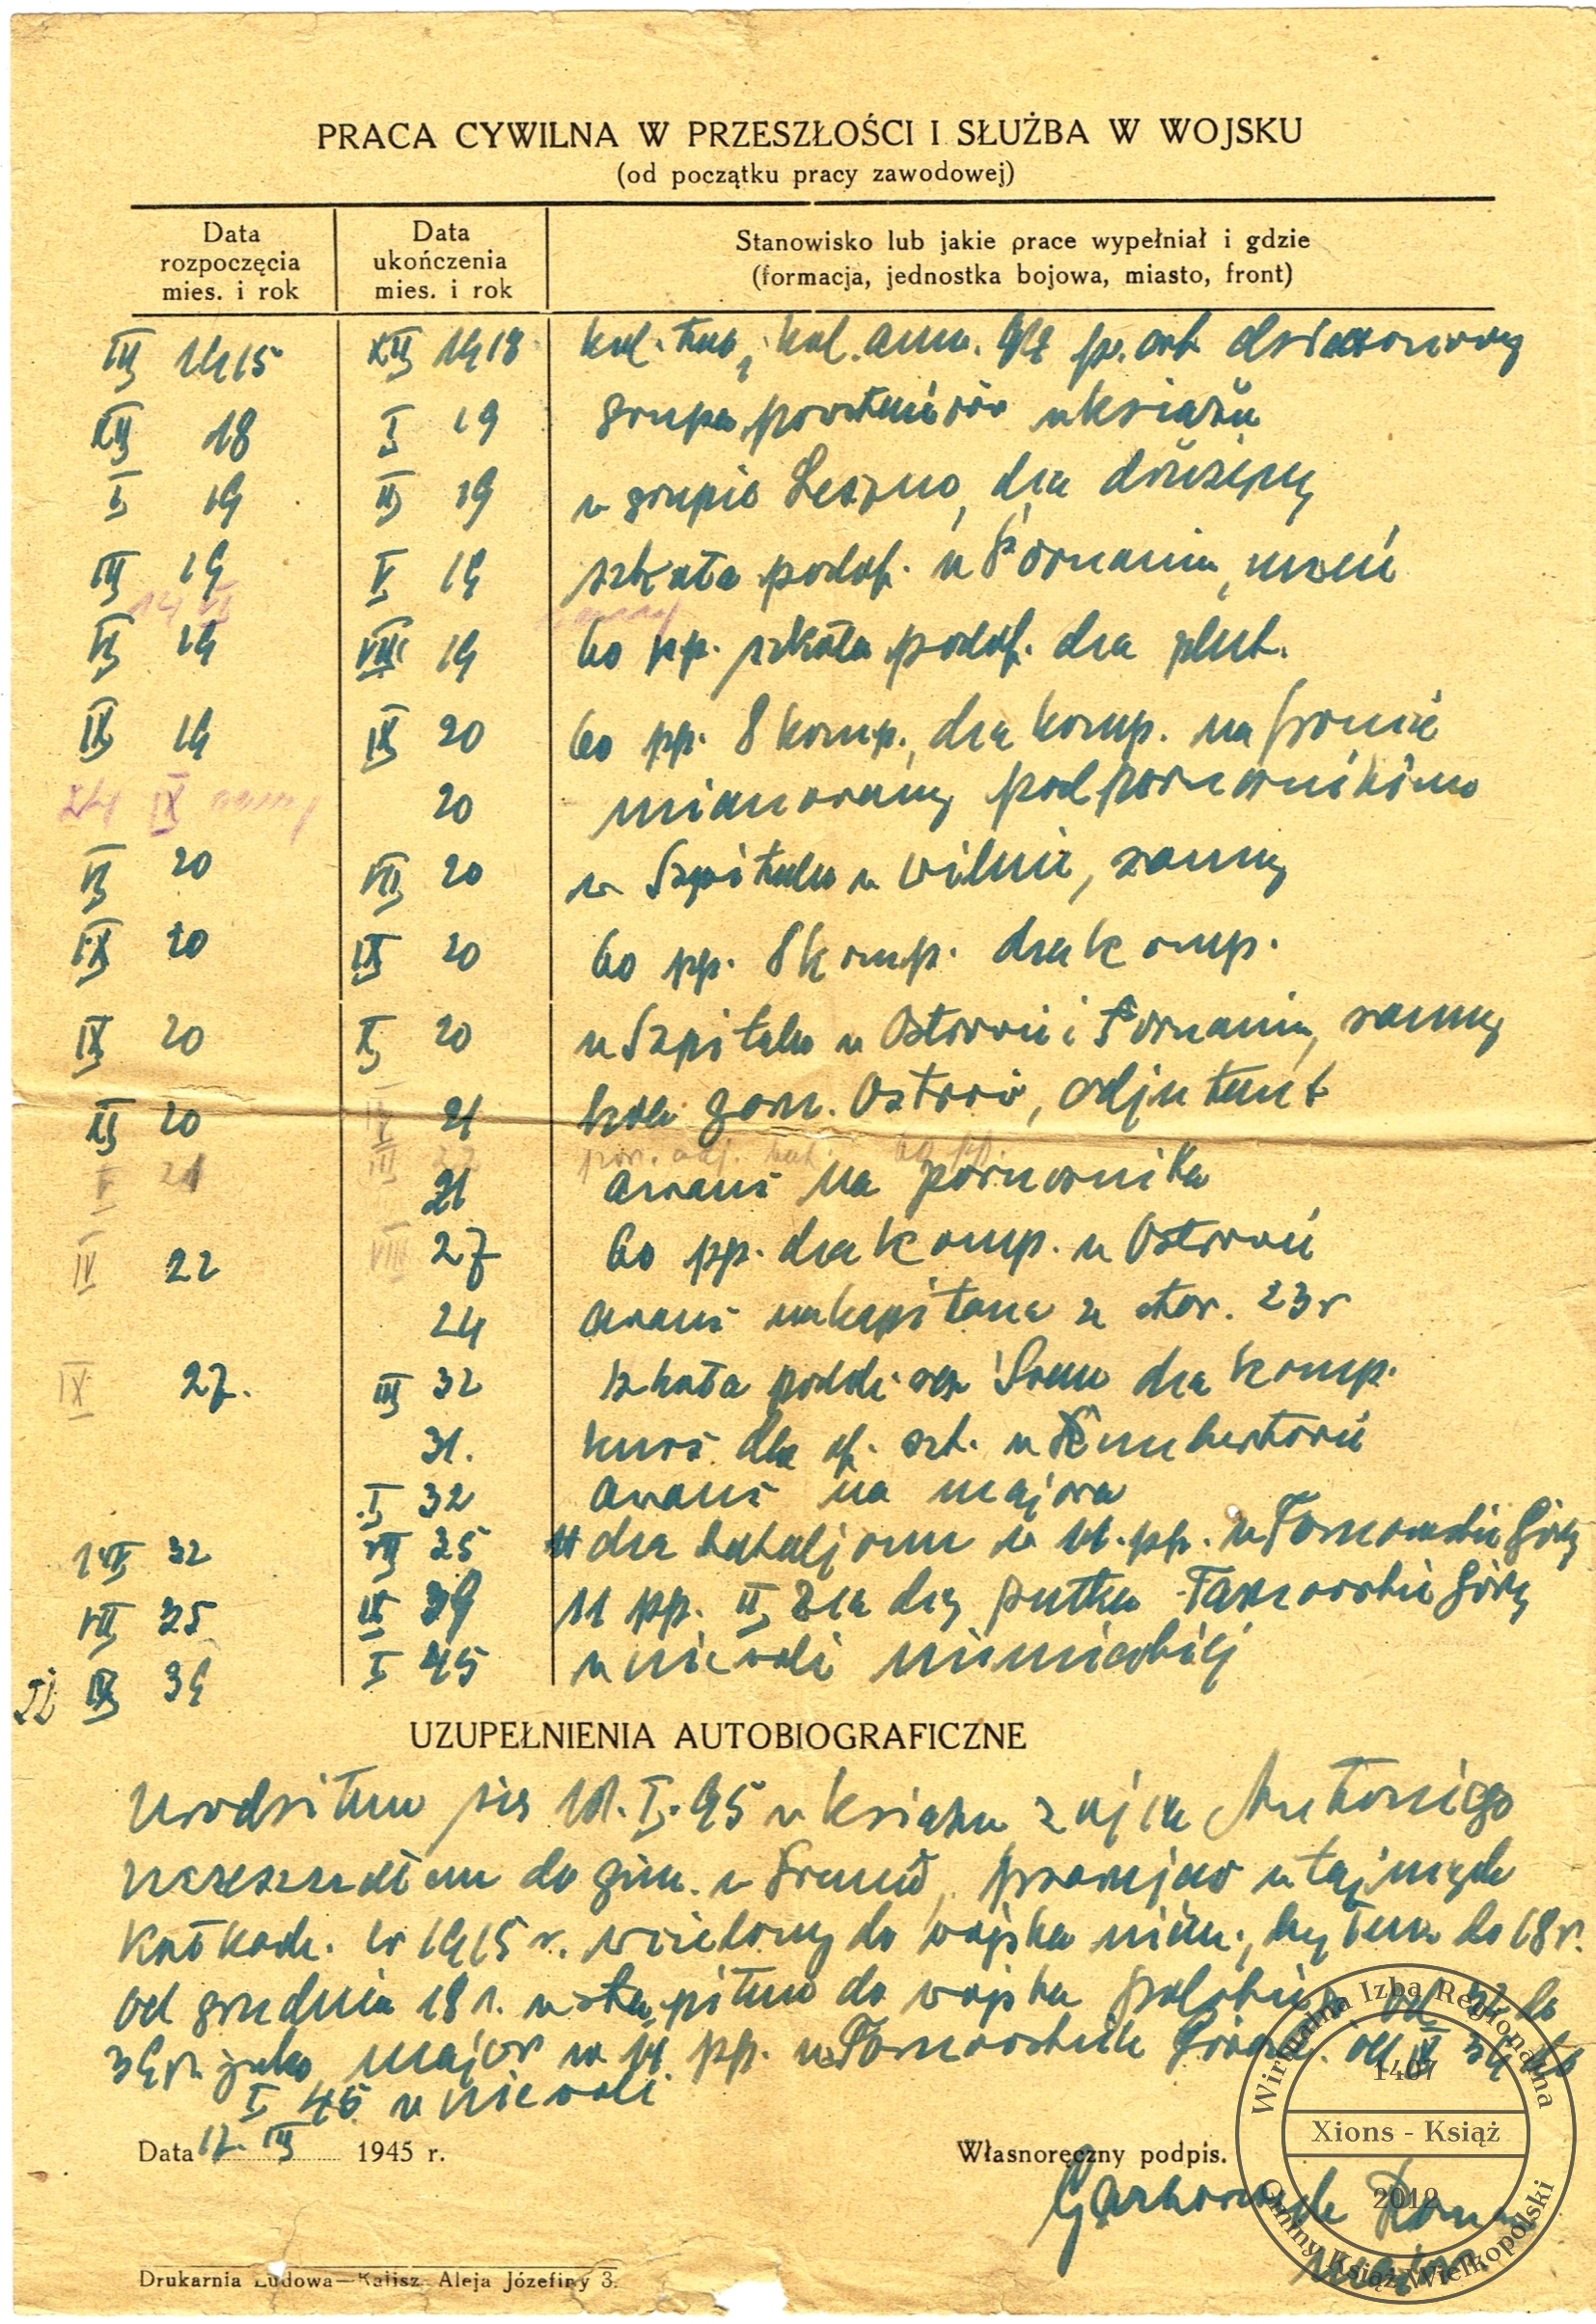 PRACA CYWILNA W PRZESZŁOŚCI I SŁUŻBA W WOJSKU
(od początku pracy zawodowej)
Data rozpoczęcia mies. i rok
Data ukończenia mies. i rok
Stanowisko lub jakie prace wypełniał i gdzie
(formacja, jednostka bojowa, miasto, front)
III 1915 XII 1918 kol. amu. p. art.
XII 18 I 19 grupa powstańców w Książu
I 19 II 19 w grupie Leszno, dca drużyny
III 19 V 19 szkoła podof. w Poznaniu, uczeń
VI 19 VIII 19 60 pp. szkoła podof. dca plut.
IX 19 IX 20 60 pp. 8 komp., dca komp. na froncie
24 IX ranny 20 mianowany podporucznikiem
VI 20 VIII 20 w Szpitalu w Wilnie, ranny
IX 20 IX 20 60 pp. 8 komp. dca komp.
IX 20 X 20 w Szpitalu w Ostrowie i Poznaniu, ranny
XI 20 21 kda garn. Ostrów, adjutant
V 21 III 22 por. adj. bat. 60 pp.
21 awans na porucznika
IV 22 VIII 27 60 pp. dca komp. w Ostrowie
24 awans na kapitana ze star. 23 r
IX 27. III 32 szkoła podch. rez Śrem dca komp.
31. kurs dla of. szt. w Rembertowie
I 32 awans na majora
32 VII 35 dca bataljonu w 11. pp. w Tarnowskie Góry
VII 35 IX 39 11 pp. II zca dcy pułku Tarnowskie Góry
IX 39 I 45 w niewoli niemieckiej
UZUPEŁNIENIA AUTOBIOGRAFICZNE
Urodziłem się I. 95 w Książu z ojca Antoniego
uczeszczałem do gim. w Śremie, pracując w tajnych
kółkach. W 1915 r. wcielony do wojska niem., byłem do 18 r.
Od grudnia 18 r. wstąpiłem do wojska polskiego od 32 do
39 r. jako major w 11 pp. w Tarnowskich Górach. Od IX 39 do
I 45 w niewoli
Data 12. III 1945 r.
Własnoręczny podpis.
Roman
major
Drukarnia Ludowa—Kalisz Aleja Józefiny 3.
Wirtualna Izba Regionalna
1407
Xions - Książ
2012
Gminy Książ Wielkopolski